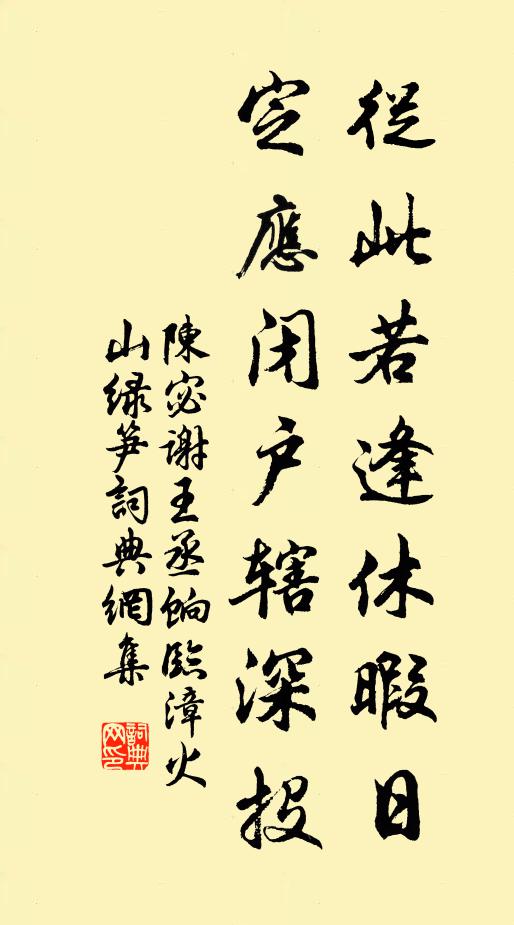 從此若逢休暇日
定應闭户辖深投
陳宓謝王丞餉臨漳火
山绿笋詞典網集
詞典
网印